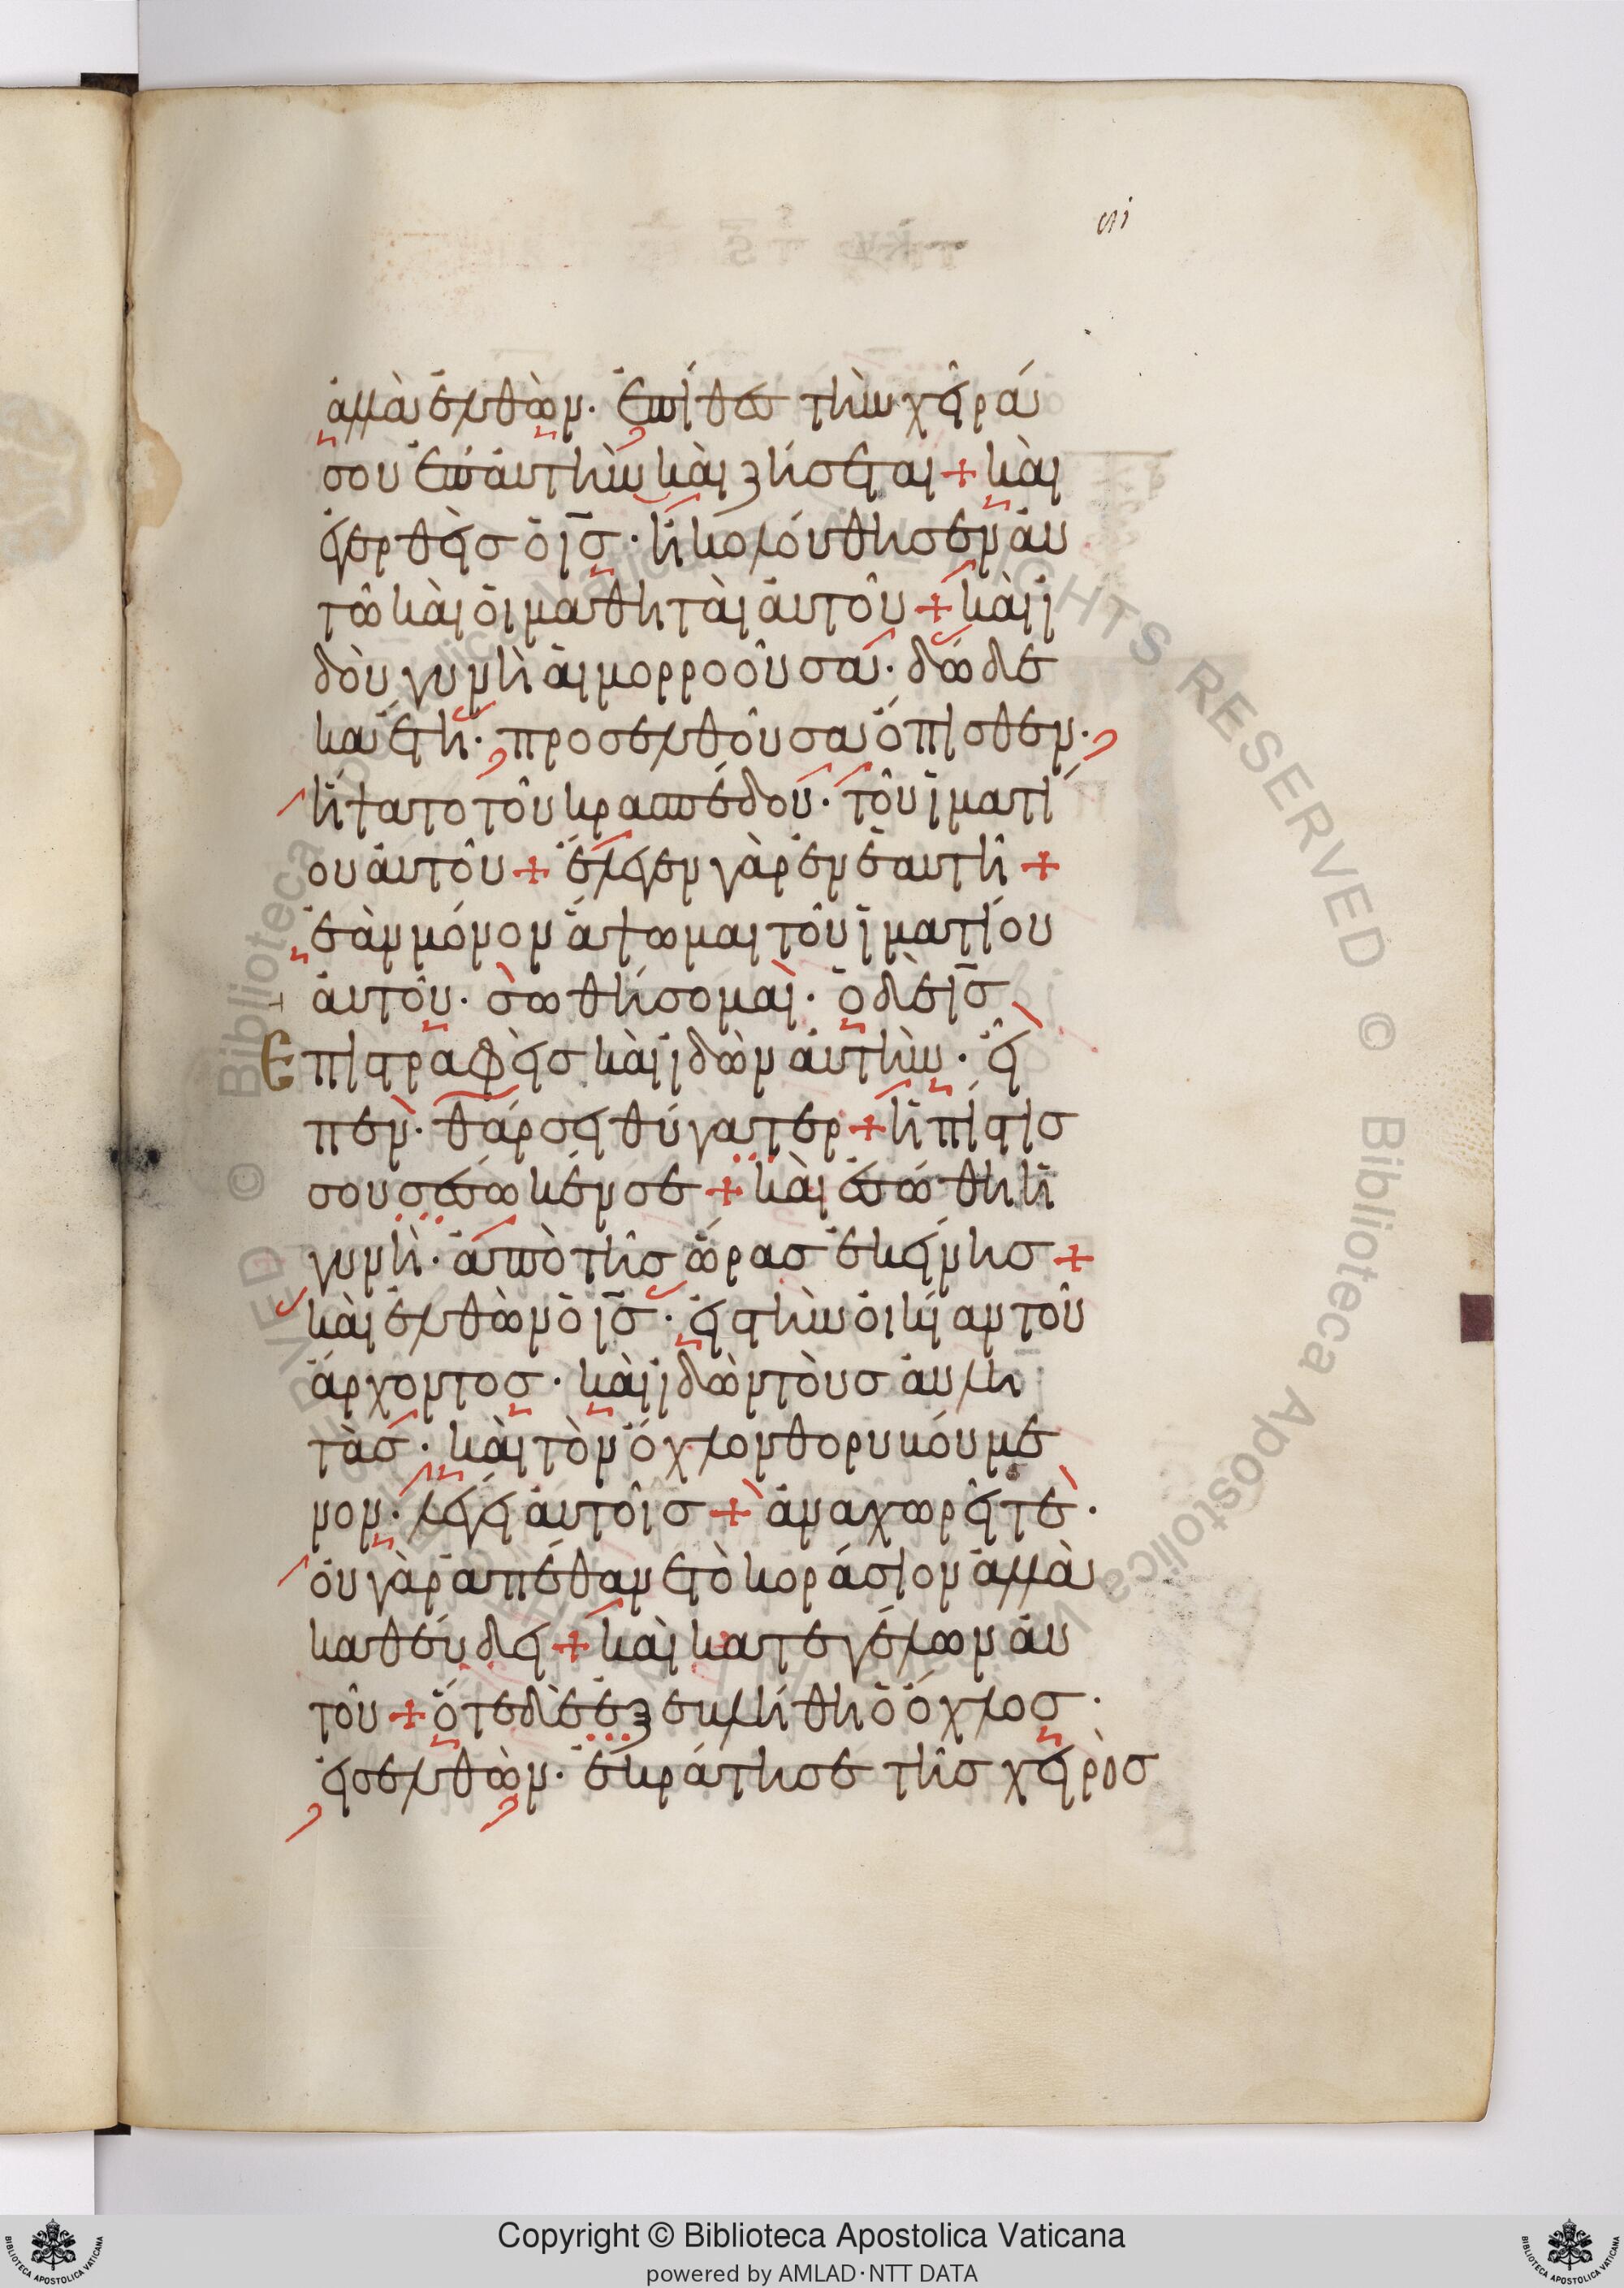 ἀλλὰ ἐλθὼν· ἐπίθες τὴν χεῖρά
σου ἐπ' ἀυτὴν κὰι ζήσεται + κὰι
ἐγερθεὶς ὁ ις̅· ἠκολόυθησεν ἀυ
τῶ κὰι ὁι μαθητὰι ἀυτοῦ + κὰι ἰ
δοὺ γυνὴ ἁιμορροοῦσα· δώδε
κα ἔτη· προσελθοῦσα ὄπισθεν·
ἥψατο τοῦ κρασπέδου· τοῦ ἱματί
ου ἀυτοῦ + ἔλεγεν γὰρ ἐν ἑαυτῆ +
ἐὰν μόνον ἅψωμαι τοῦ ἱματίου
ἀυτοῦ· σωθήσομαι· ὁ δὲ ις̅
Επιστραφεὶς κὰι ἰδὼν ἀυτὴν· εἶ
πεν· θάρσει θύγατερ + ἡ πίστις
σου σέσωκέν σε + κὰι ἐσώθη ἡ
γυνὴ· ἀπὸ τῆς ὥρας ἐκείνης +
κὰι ἐλθὼν ὁ ις̅· εἰς τὴν ὀικίαν τοῦ
ἄρχοντος· κὰι ἰδὼν τοὺς ἀυλη
τὰς· κὰι τὸν ὄχλον θορυβόυμε
νον· λέγει ἀυτοῖς + ἀναχωρεῖτε·
ὀυ γὰρ ἀπέθανε τὸ κοράσιον ἀλλὰ
καθέυδει + κὰι κατεγέλων ἀυ
τοῦ + ὅτε δὲ ἐξεβλήθη ὁ ὄχλος·
εἰσελθὼν· ἐκράτησε τῆς χειρὸς
Copyright © Biblioteca Apostolica Vaticana
powered by AMLAD·NTT DATA